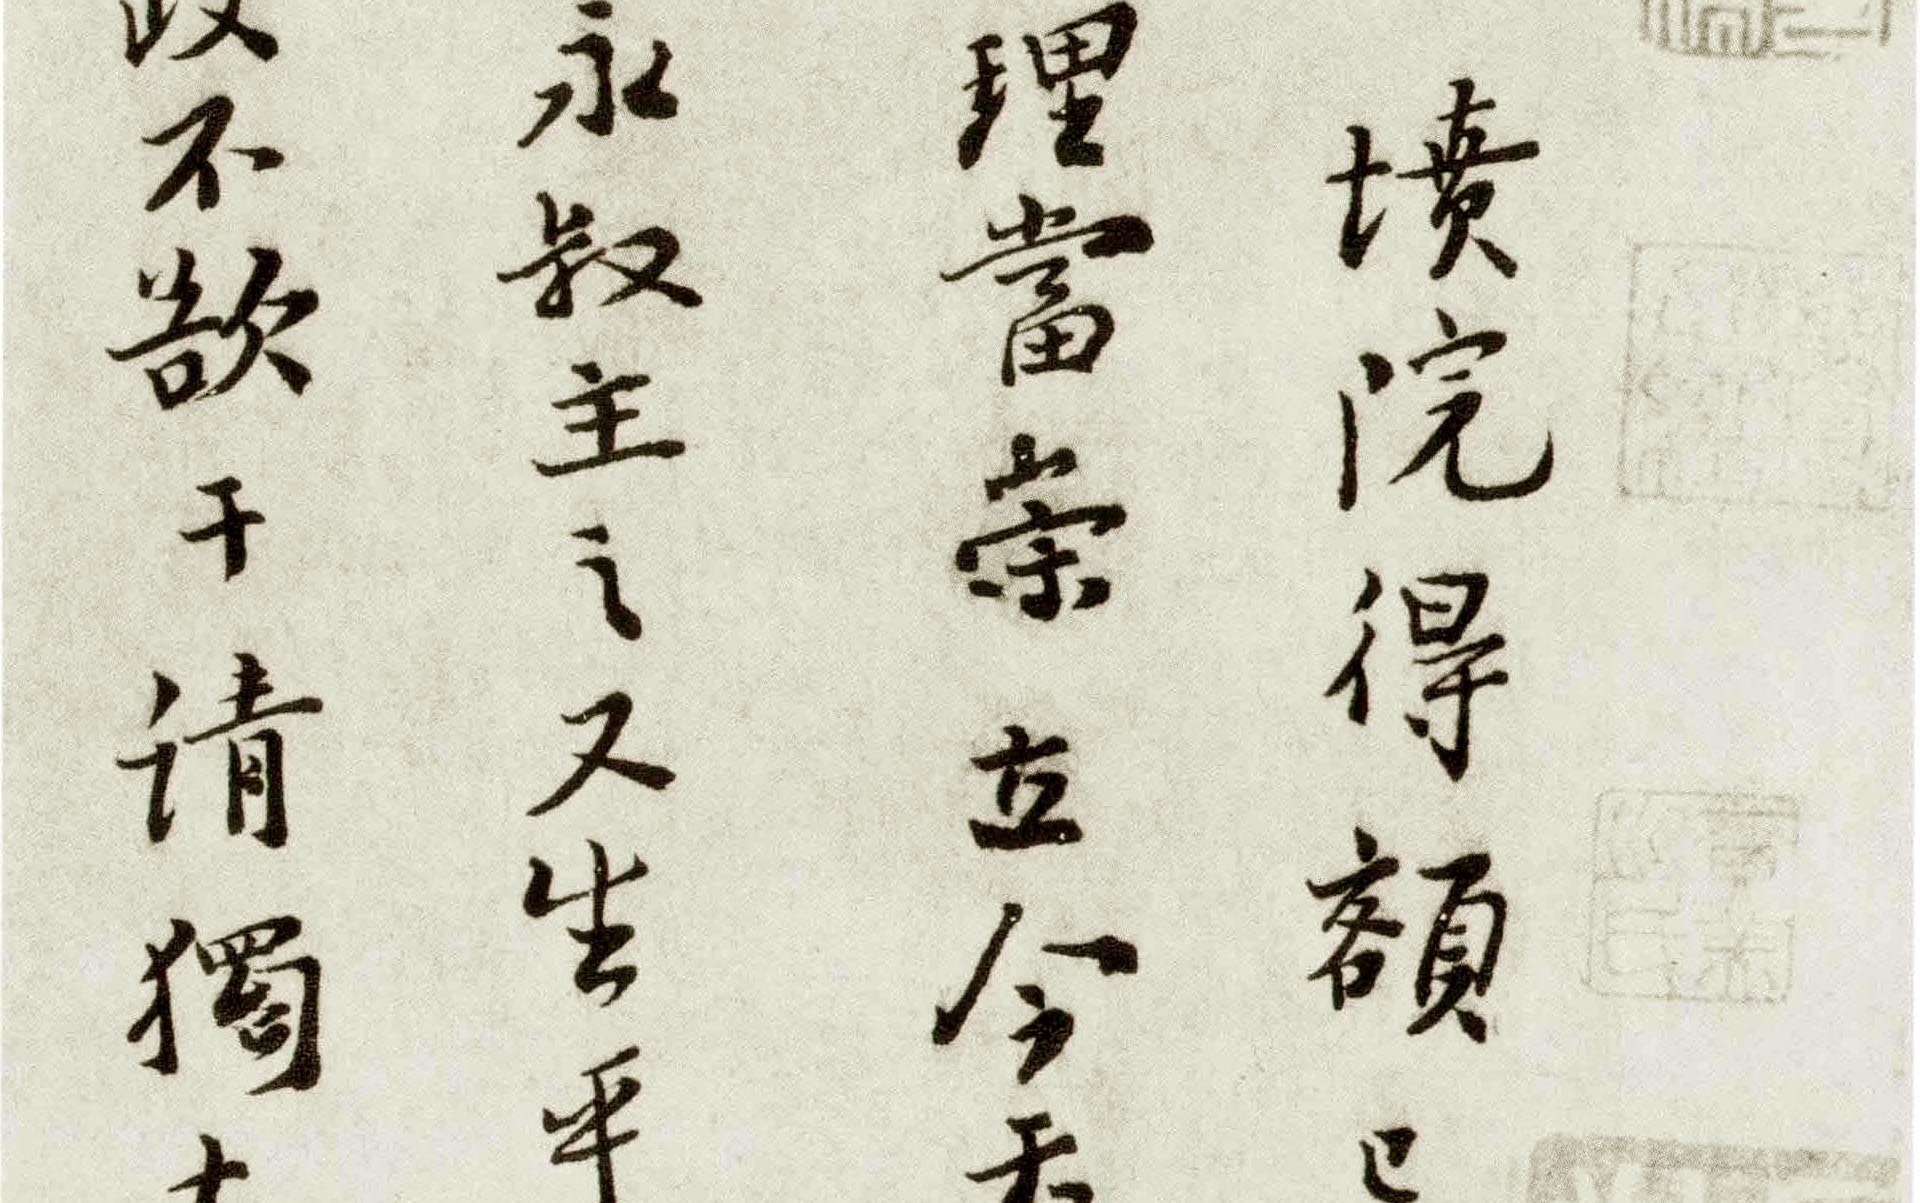 墳院得額已
理當崇立今天
永叔主之又生平
政不欲干請獨